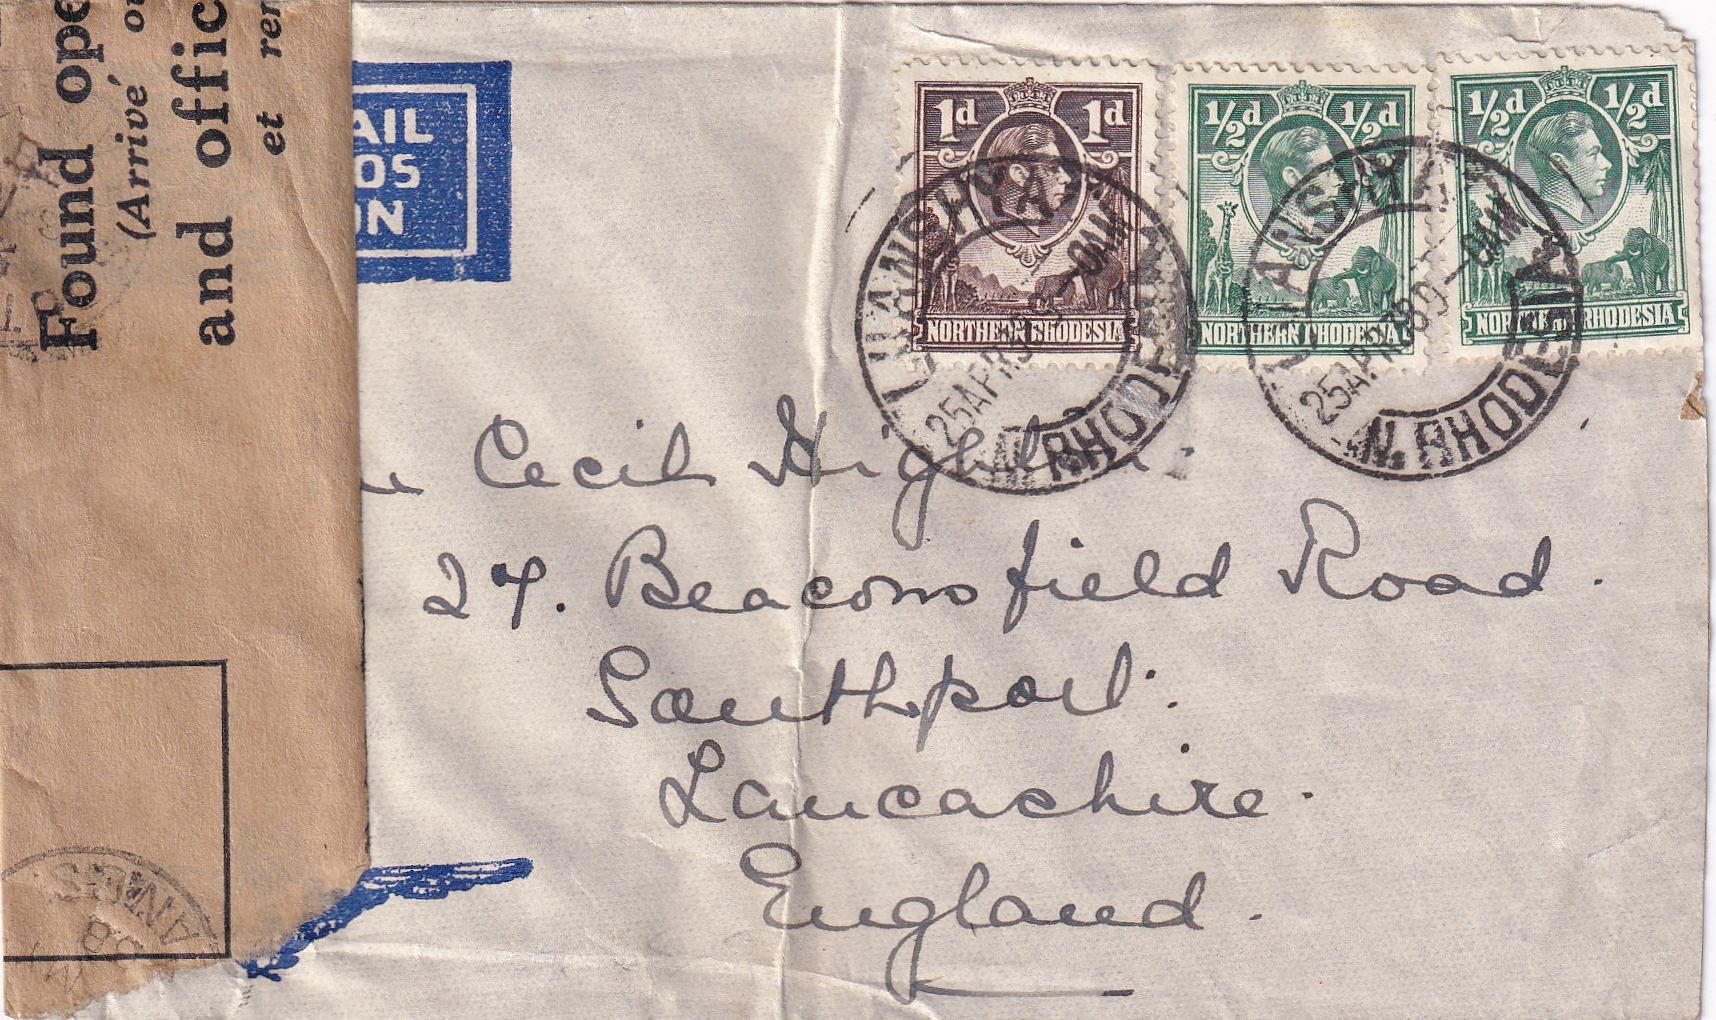 Found ope
(Arrivé ou
and offic
et rer
AIL
OS
ON
1d 1d
NORTHERN RHODESIA
½d ½d
NORTHERN RHODESIA
½d ½d
NORTHERN RHODESIA
LUANSHYA
N. RHODESIA
25 APR 39
LUANSHYA
N. RHODESIA
25 APR 39
Cecil
27. Beaconsfield Road.
Southport.
Lancashire.
England.